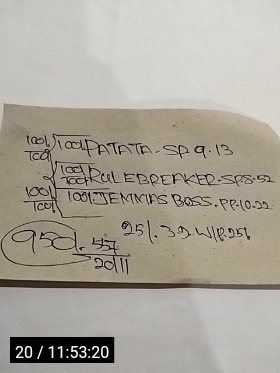 100/100 100/ PATATA. SP 9.13
100/100 RULEBREAKER. SP 8.52
100/100 100/. JEMMAS BOSS. PP. 10.22
25/. 32. W/P. 256
950/. 
20/11
20 / 11:53:20